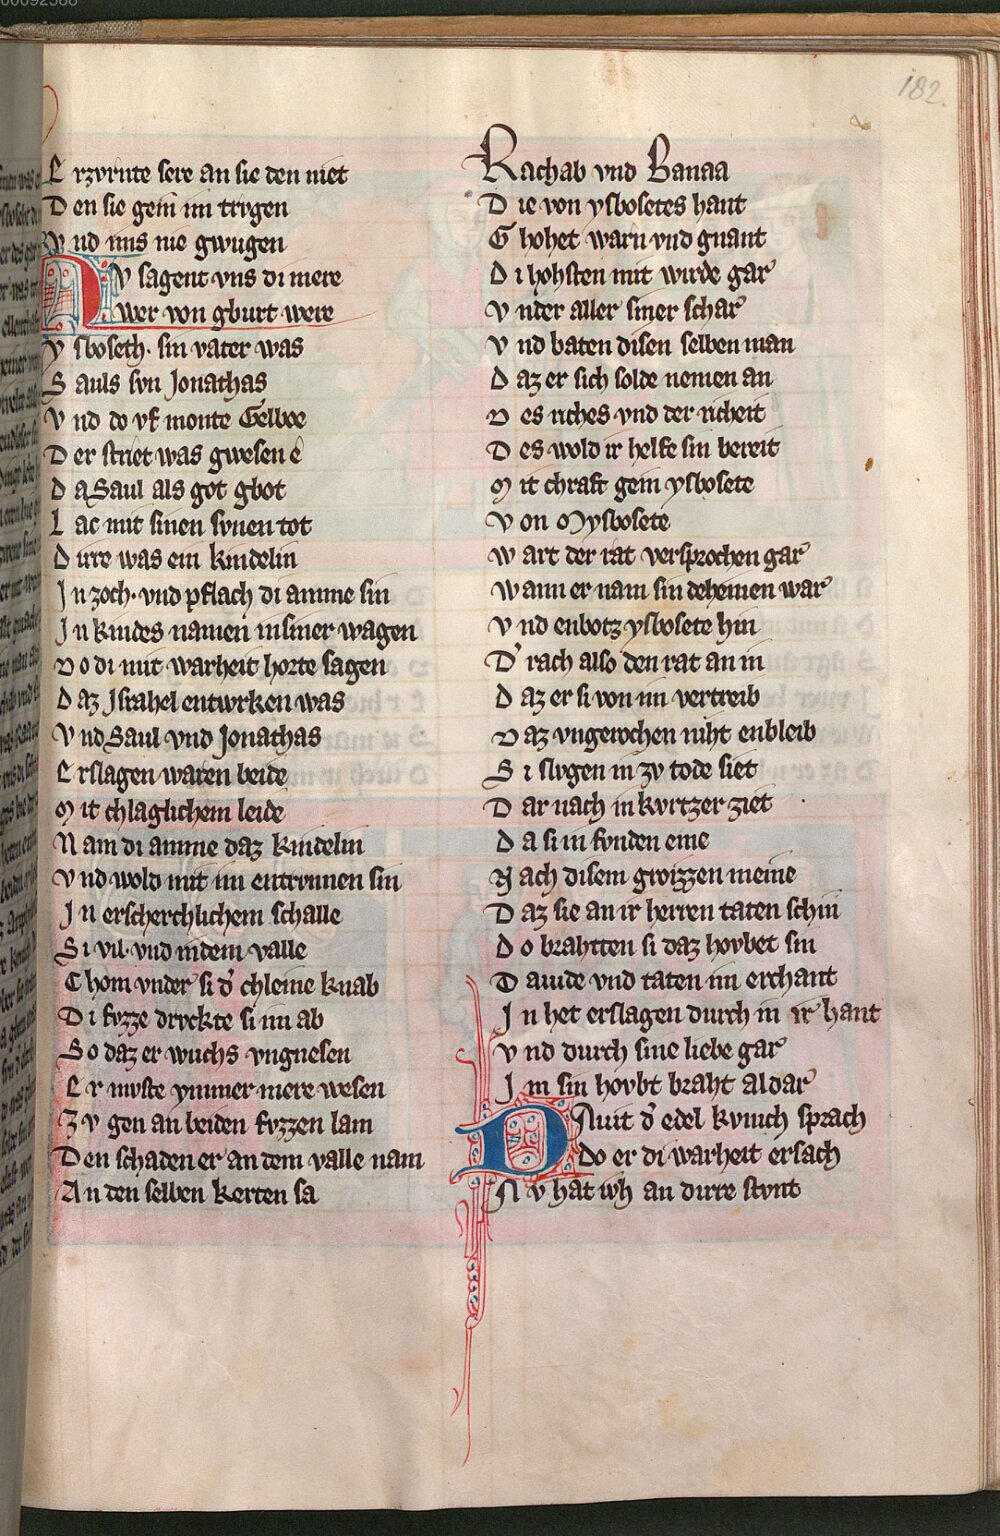 182.
E rzvrnte sere an sie den niet
D en sie gein im trvgen
V nd ims nie gwugen
N V sagent vns di mere
wer von gburt were
Y sboseth· sin vater was
S auls svn Jonathas
V nd do vf monte Gelboe
D er striet was gwesen e
D a Saul als got gbot
L ac mit sinen svnen tot
D irre was ein kindelin
I n zoch· vnd pflach di amme sin
I n kindes namen in siner wagen
D o di mit warheit horte sagen
D az Israhel entwrken was
V nd Saul vnd Jonathas
E rslagen waren beide
M it chlaglichem leide
N am di amme daz kindelin
V nd wold mit im entrinnen sin
I n erscherchlichem schalle
S i vil· vnd in dem valle
C hom vnder si d' chleine knab
D i fvzze drvckte si im ab
S o daz er wuchs vngnesen
E r mvste ymmer mere wesen
Z v gen an beiden fvzzen lam
D en schaden er an dem valle nam
A n den selben kerten sa
Rachab vnd Banaa
D ie von ysbosetes hant
G hohet warn vnd gnant
D i hohsten mit wirde gar
V nder aller siner schar
V nd baten disen selben man
D az er sich solde nemen an
D es riches vnd der richeit
D es wold ir helfe sin bereit
M it chraft gein ysbosete
V on Mysbosete
W art der rat versprochen gar
W ann er nam sin deheinen war
V nd enbotz ysbosete hin
D' rach also den rat an in
D az er si von im vertreib
D az vngerochen niht enbleib
S i slvgen in zv tode siet
D ar nach in kvrtzer ziet
D a si in fvnden eine
N ach disem groizzen meine
D az sie an ir herren taten schin
D o brahtten si daz hovbet sin
D auide vnd taten im erchant
I n het erslagen durch in ir hant
V nd durch sine liebe gar
I m sin hovbt braht aldar
D Auit d' edel kvnich sprach
Do er di warheit ersach
N v hat ich an dirre stvnt